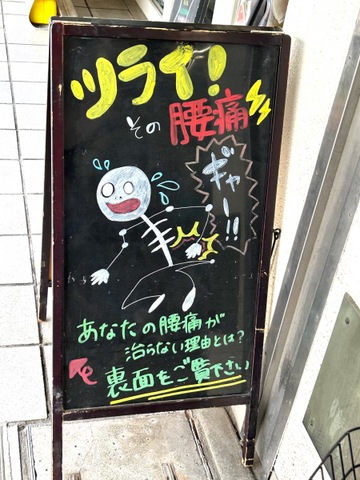 ツライ!
その腰痛
ギャー!!
あなたの腰痛が
治らない理由とは?
裏面をご覧下さい